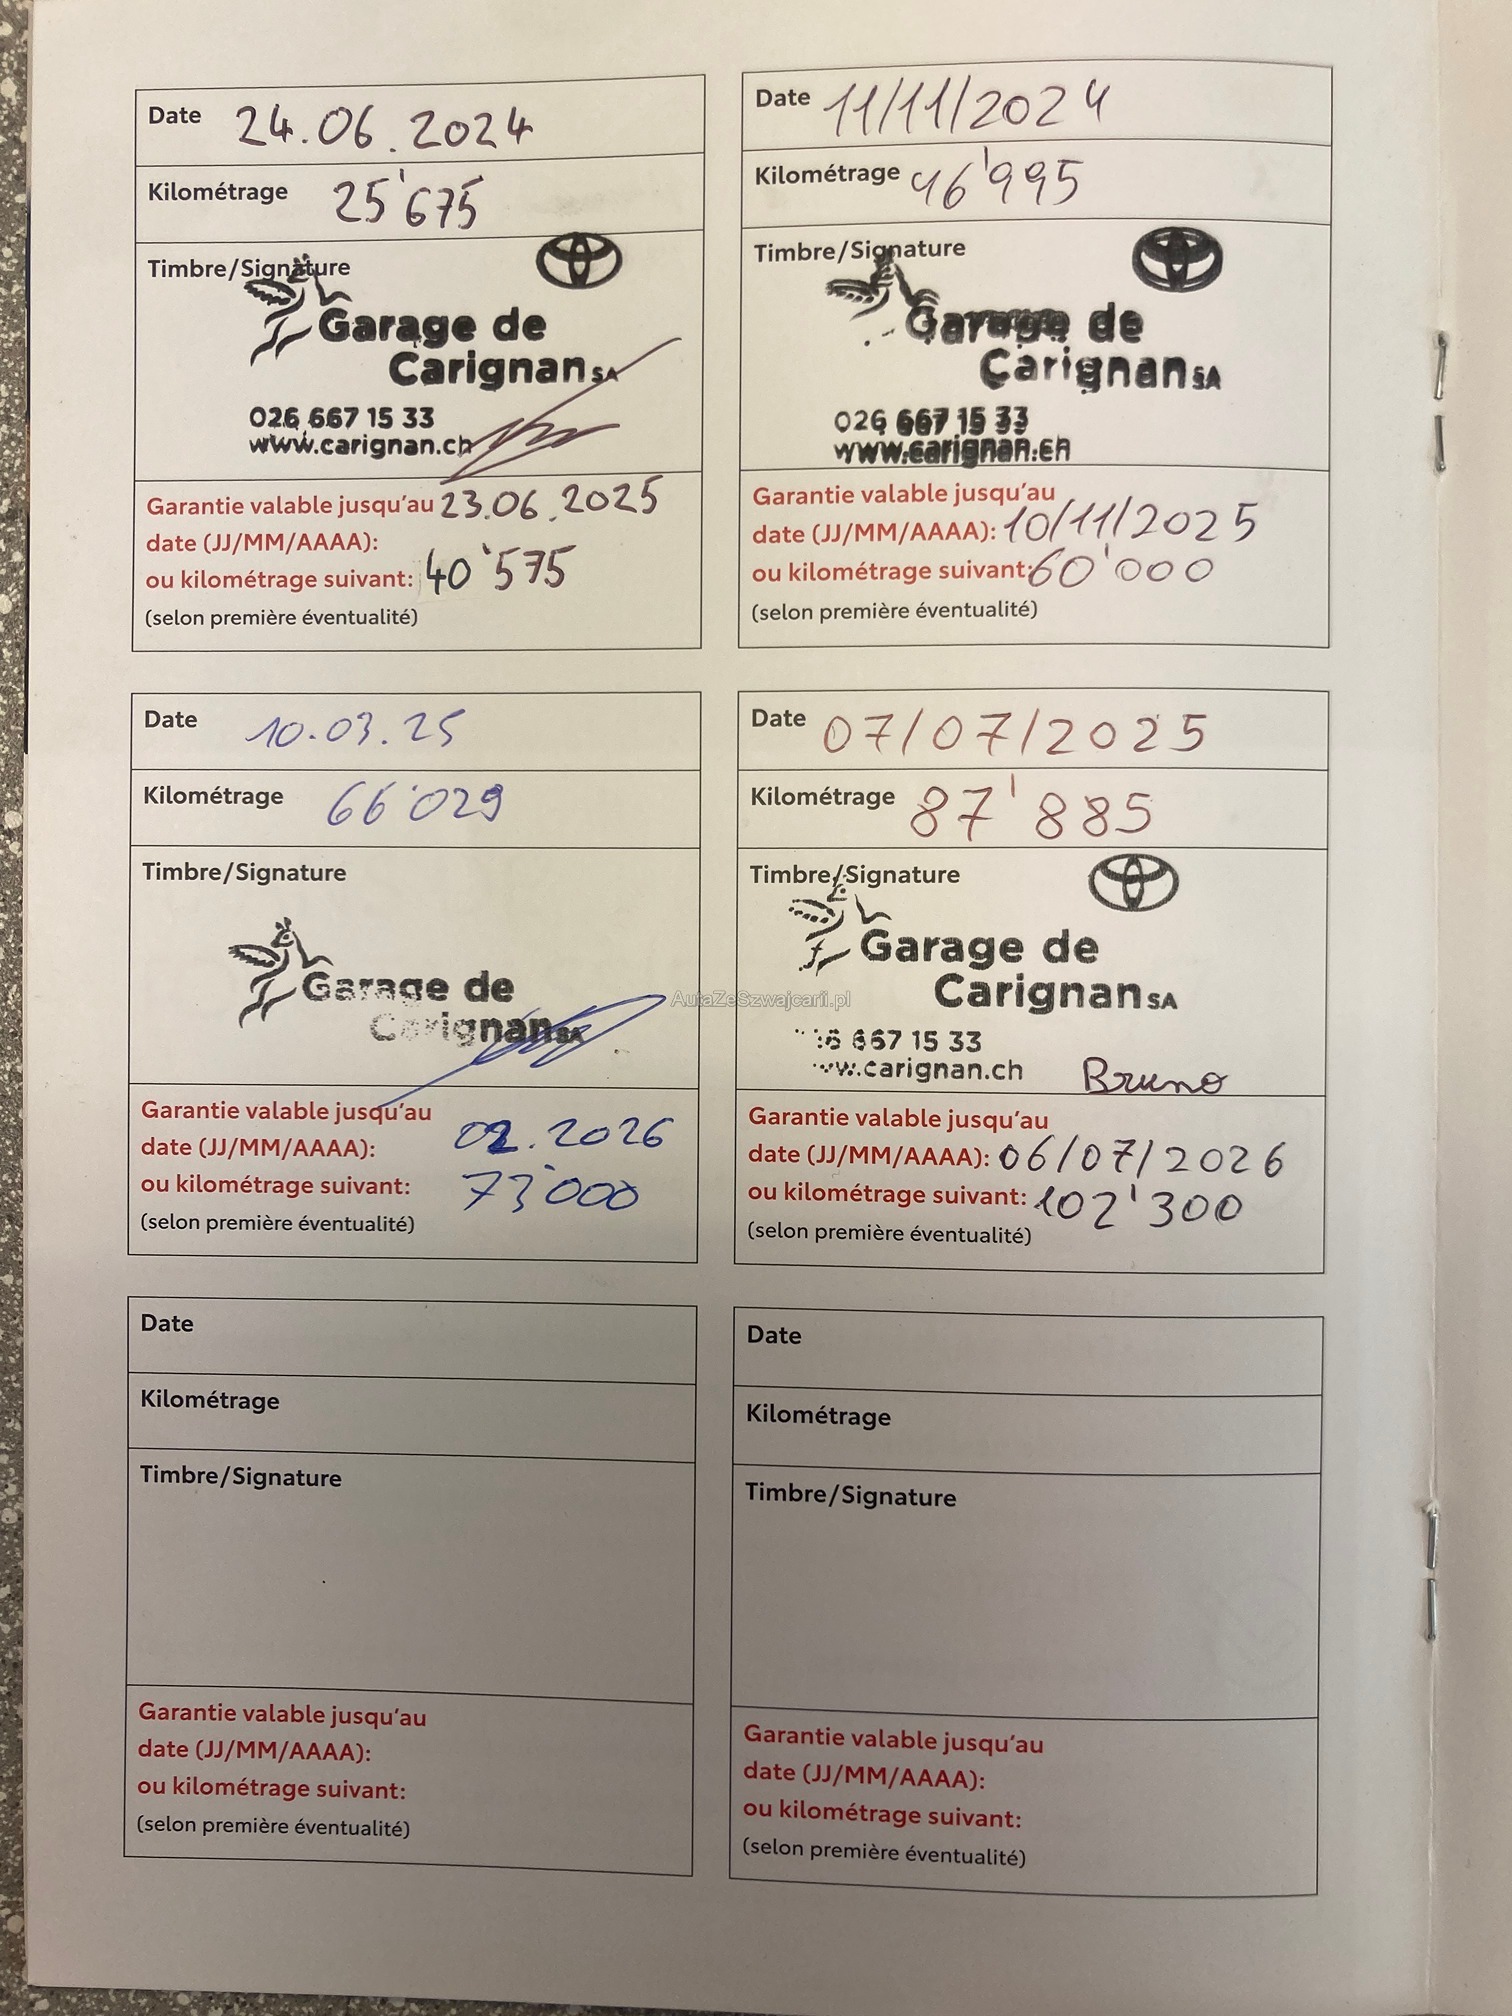 Date 24.06.2024
Kilométrage 25'675
Timbre/Signature
Garage de
Carignan SA
026 667 15 33
www.carignan.ch
Garantie valable jusqu'au 23.06.2025
date (JJ/MM/AAAA):
ou kilométrage suivant: 40'575
(selon première éventualité)
Date 11/11/2024
Kilométrage 46'995
Timbre/Signature
Garage de
Carignan SA
026 667 15 33
www.carignan.ch
Garantie valable jusqu'au
date (JJ/MM/AAAA): 10/11/2025
ou kilométrage suivant: 60'000
(selon première éventualité)
Date 10.03.25
Kilométrage 66'029
Timbre/Signature
Garage de
Carignan SA
Garantie valable jusqu'au
date (JJ/MM/AAAA): 02.2026
ou kilométrage suivant: 73'000
(selon première éventualité)
Date 07/07/2025
Kilométrage 87'885
Timbre/Signature
Garage de
Carignan SA
6 667 15 33
w.carignan.ch
Bruno
Garantie valable jusqu'au
date (JJ/MM/AAAA): 06/07/2026
ou kilométrage suivant: 102'300
(selon première éventualité)
AutaZeSzwajcarii.pl
Date
Kilométrage
Timbre/Signature
Garantie valable jusqu'au
date (JJ/MM/AAAA):
ou kilométrage suivant:
(selon première éventualité)
Date
Kilométrage
Timbre/Signature
Garantie valable jusqu'au
date (JJ/MM/AAAA):
ou kilométrage suivant:
(selon première éventualité)